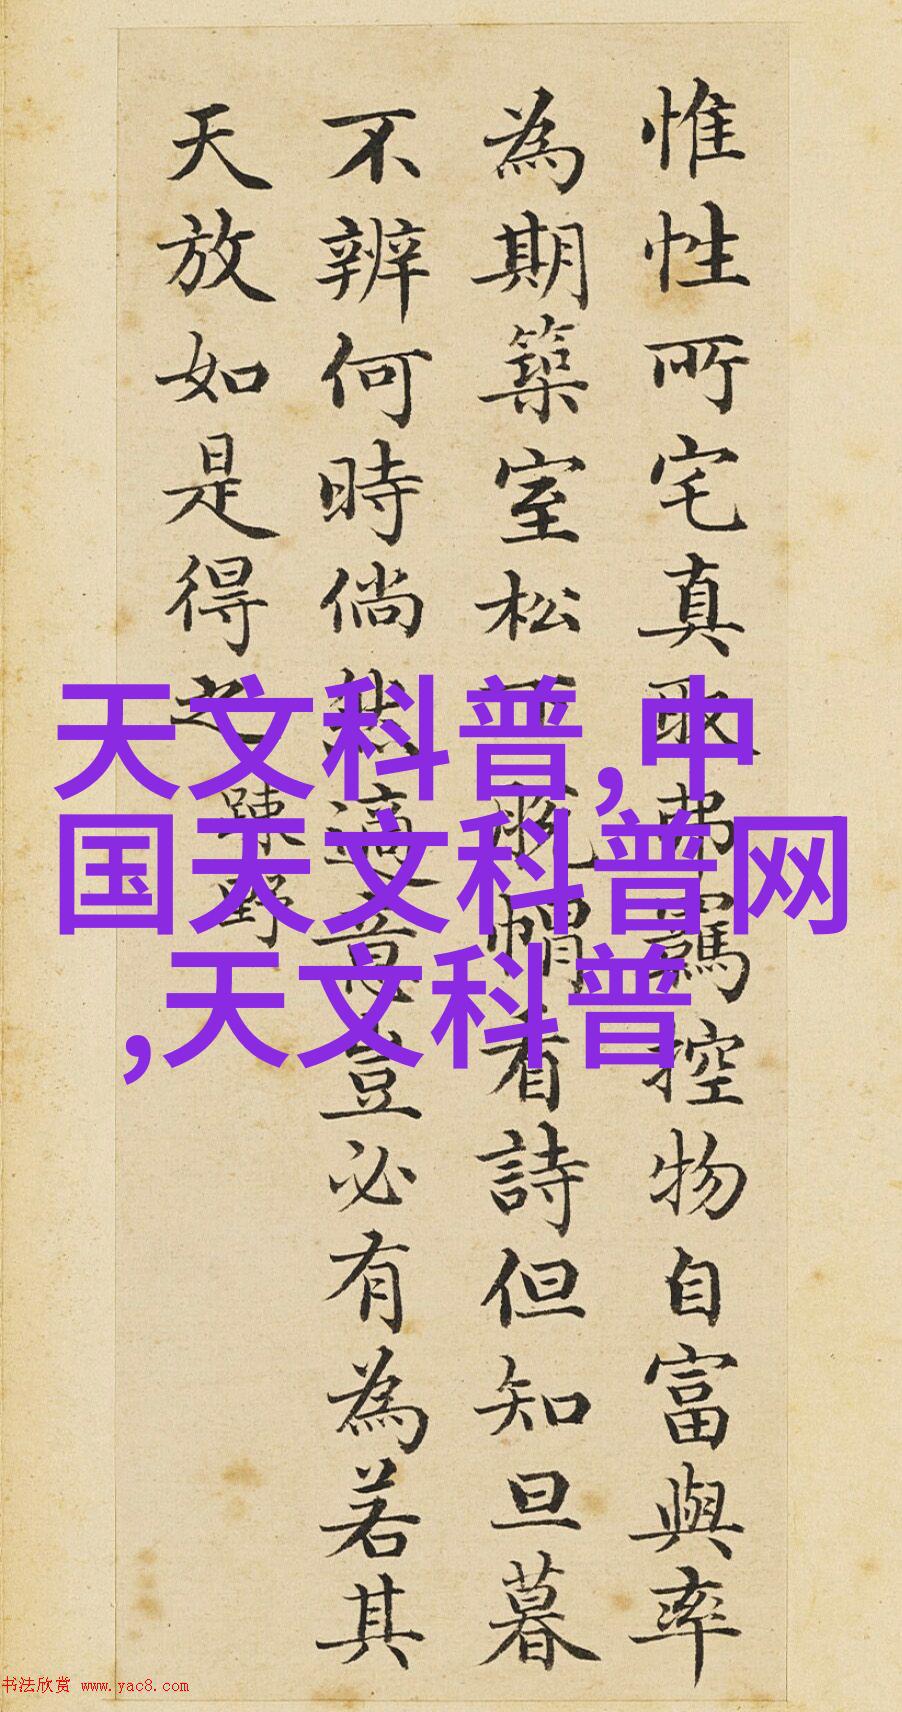 惟性所宅真取弗羈控物自富與率
為期築室松下脱帽看詩但知旦暮
不辨何時倘然適意豈必有為若其
天放如是得之
疎野
天文科普,中
国天文科普网
,天文科普
书法欣赏 www.yac8.com